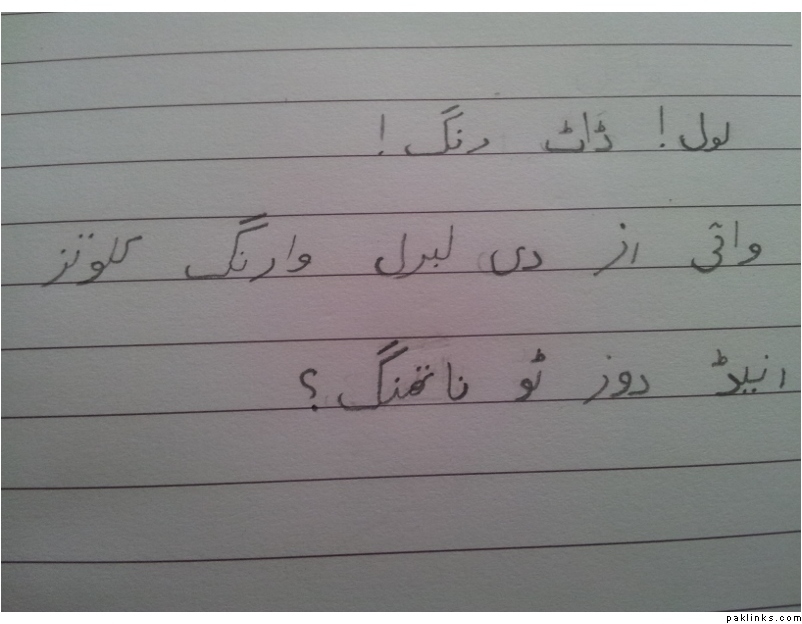 لول! ڈاٹ رنگ!
وائی از دی لبرل وارنگ کلوتز
اینڈ دوز ٹو ناتھنگ؟
paklinks.com